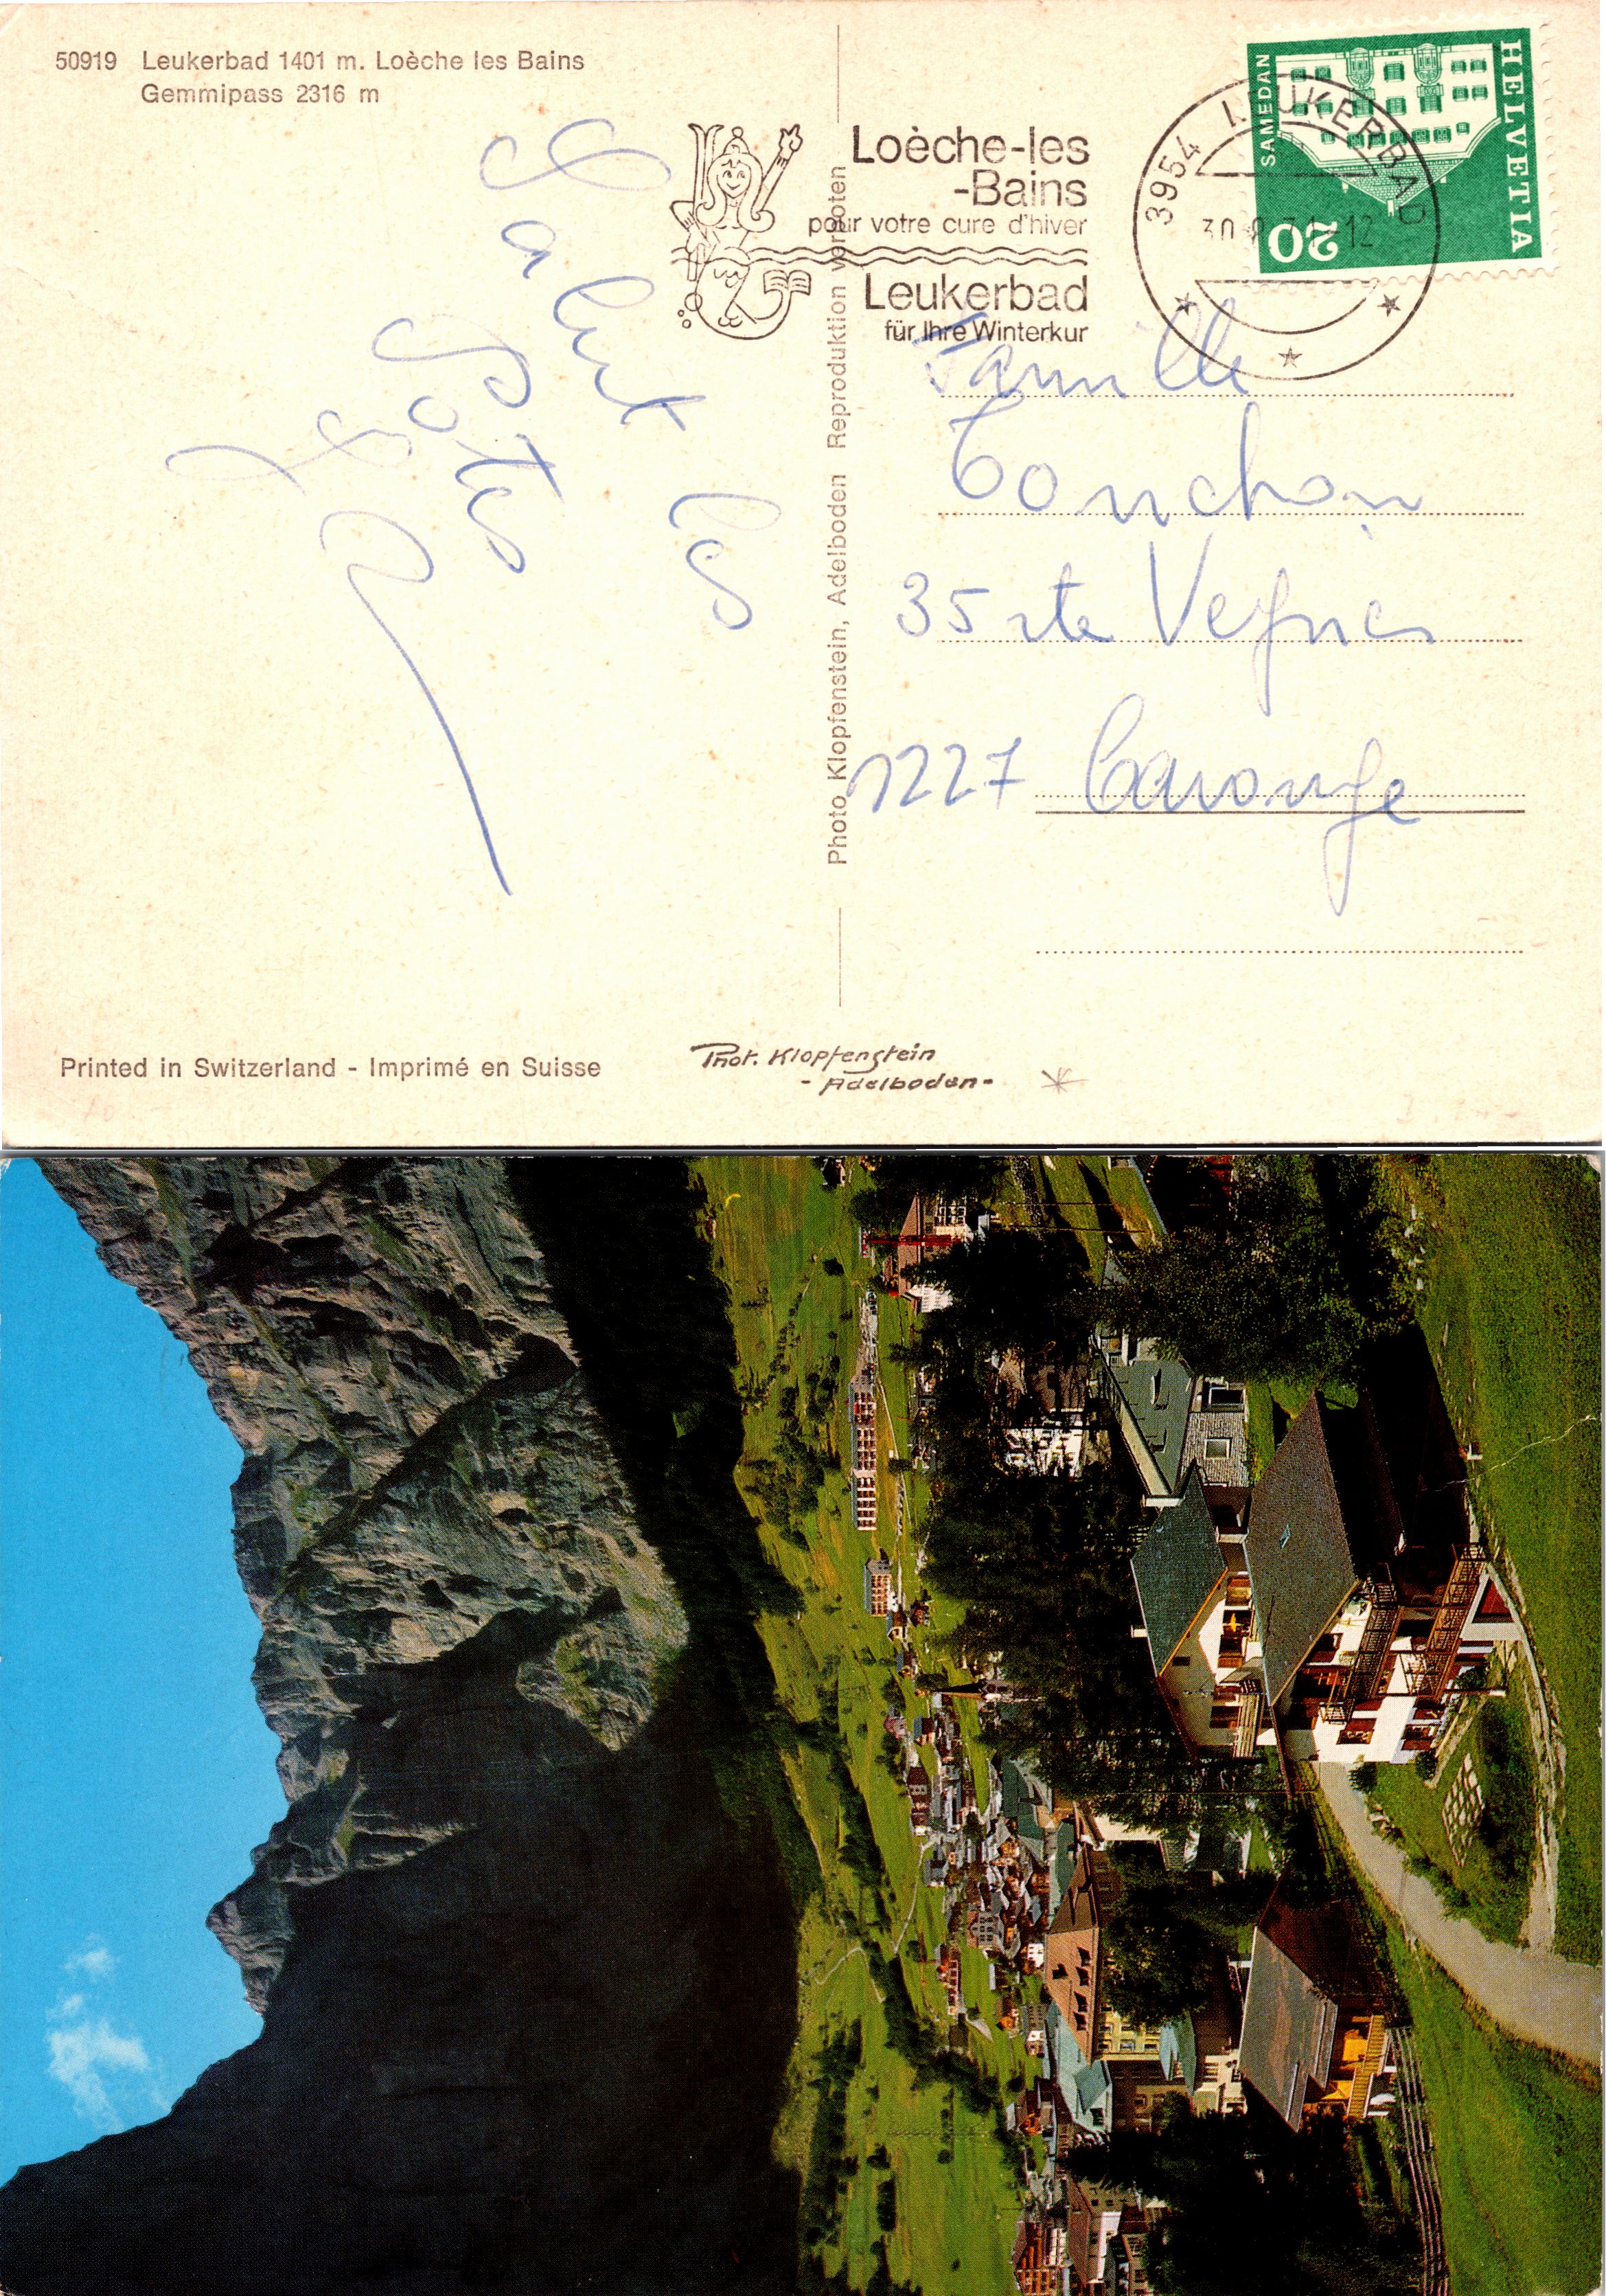 50919 Leukerbad 1401 m. Loèche les Bains
Gemmipass 2316 m
Salut les
potes
Loèche-les
-Bains
pour votre cure d'hiver
Leukerbad
für Ihre Winterkur
3954 LEUKERBAD
-12
HELVETIA
SAMEDAN
20
Photo Klopfenstein, Adelboden Reproduktion verboten
Famille
35 rte Veyrier
1227 Carouge
Printed in Switzerland - Imprimé en Suisse
Phot. Klopfenstein
- Adelboden -